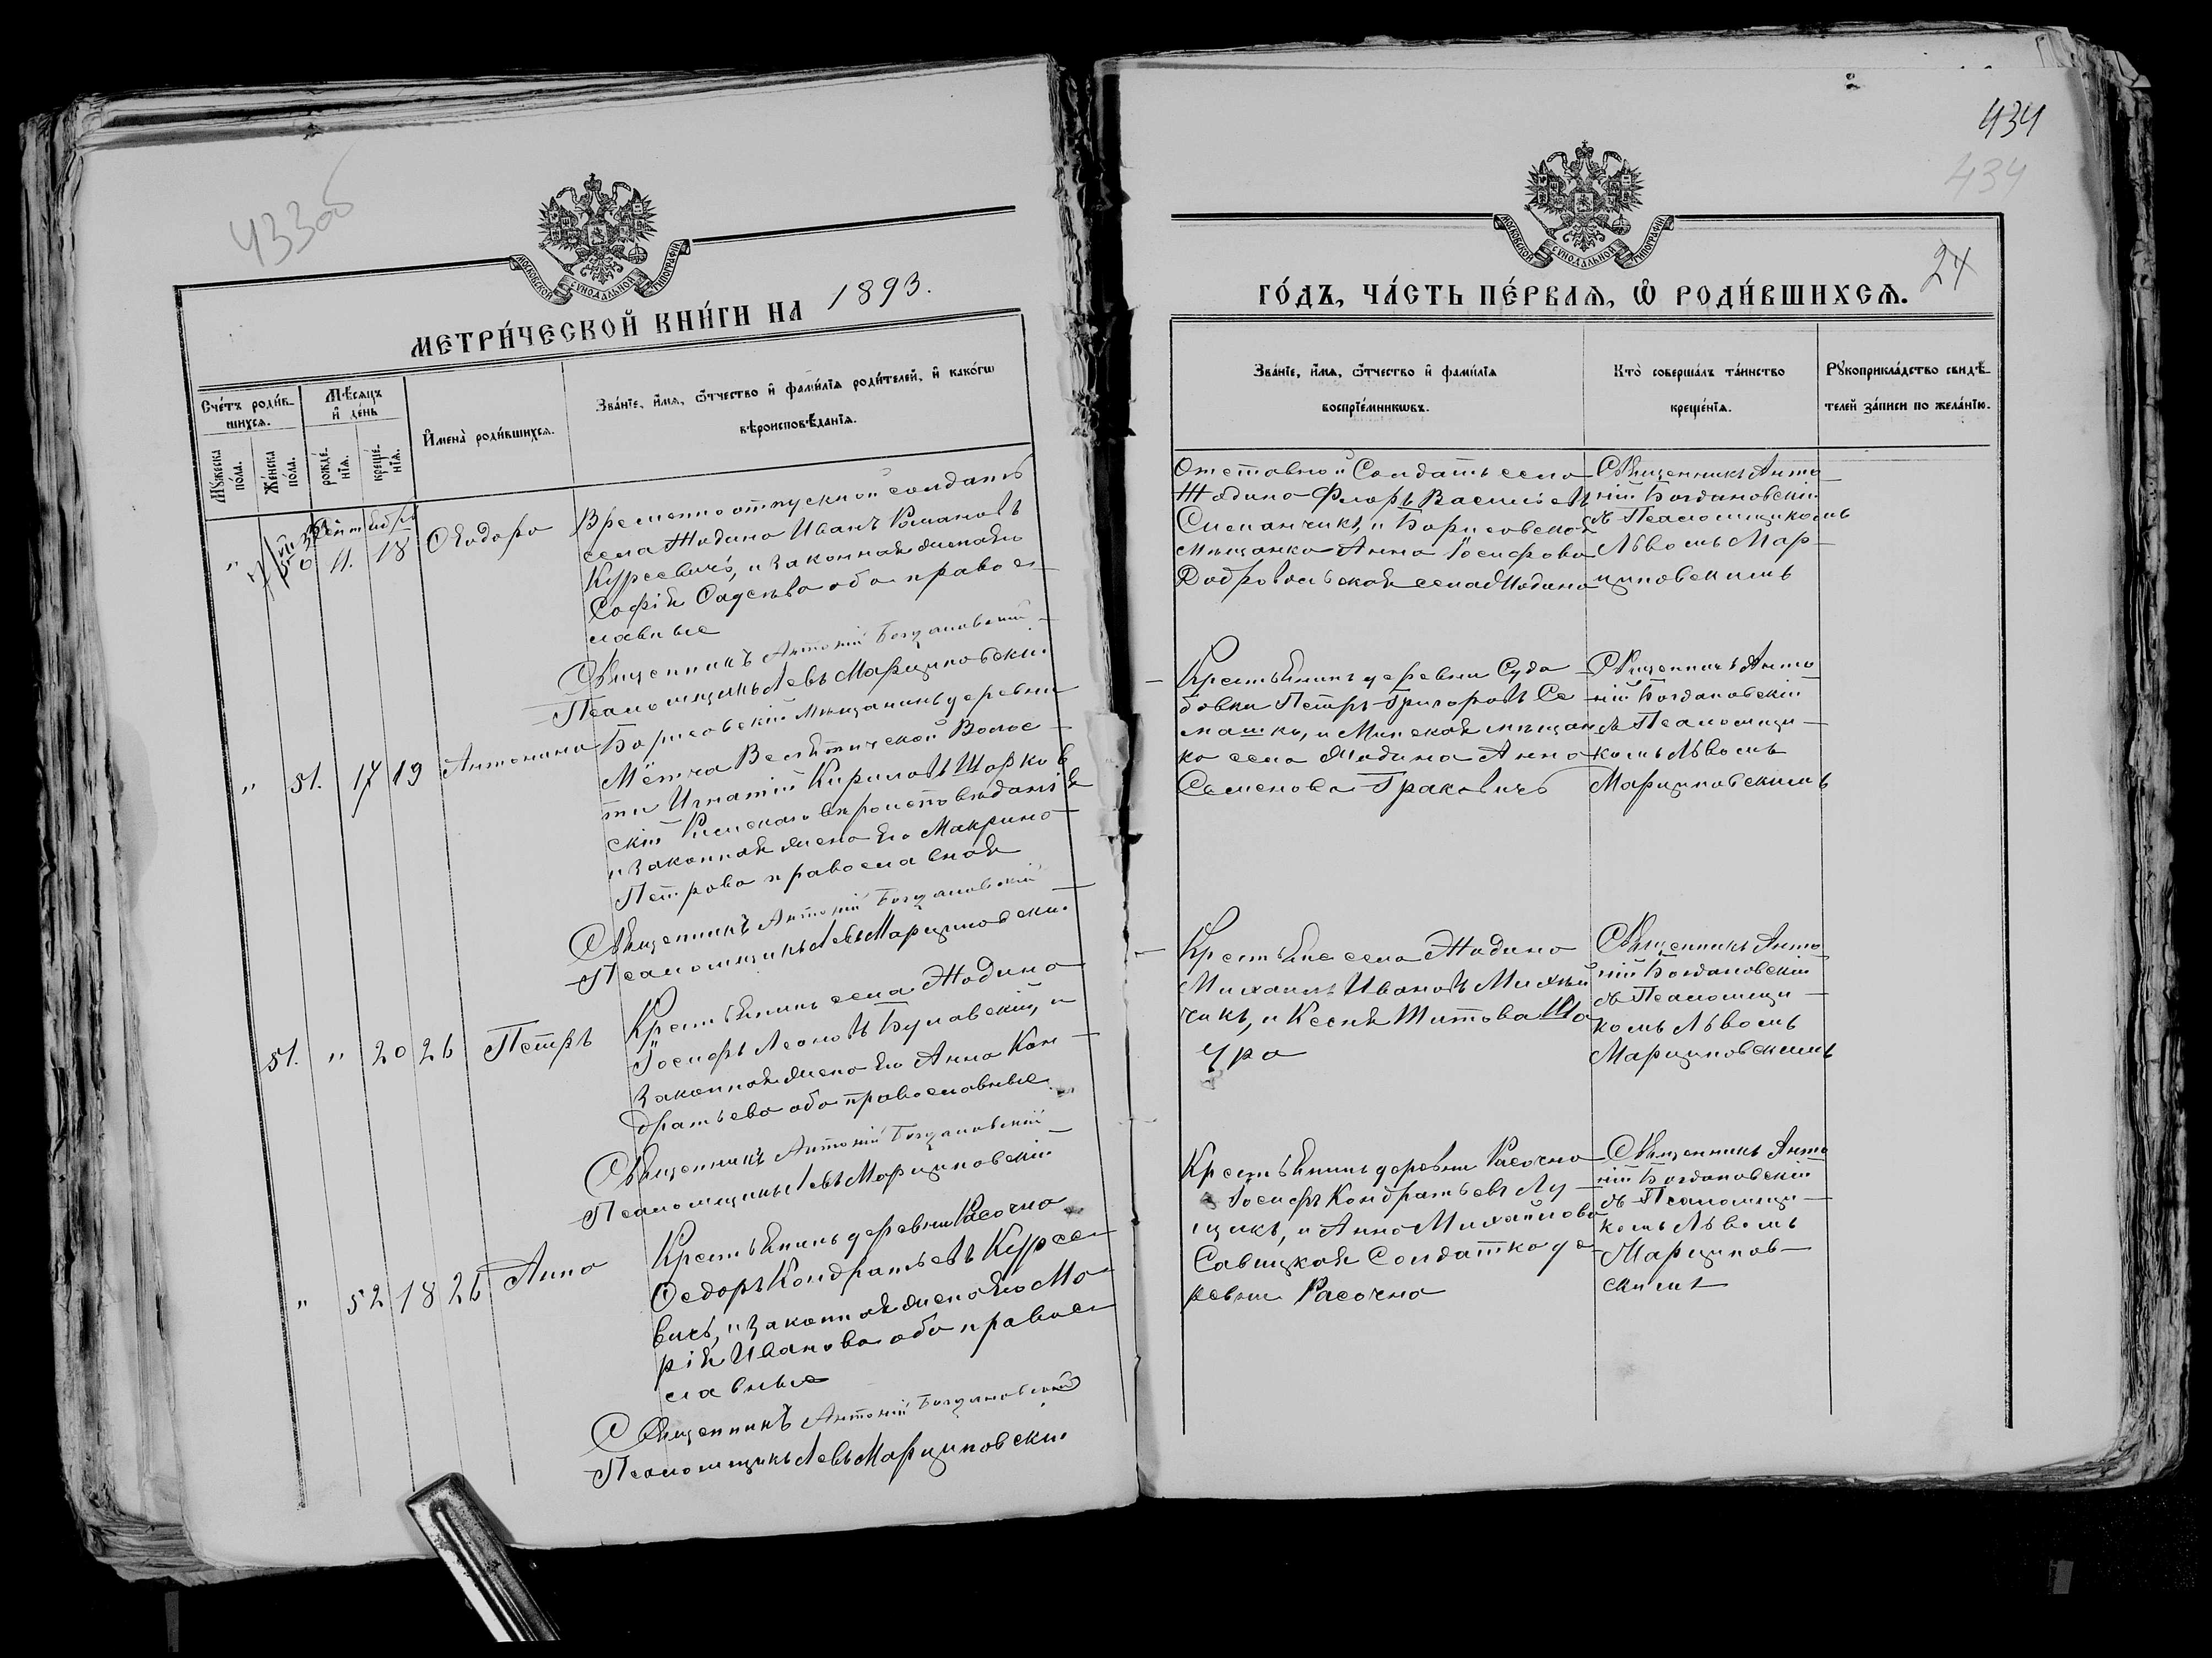 433об
МОСКОВСКОЙ СѴНОДАЛЬНОЙ ТИПОГРАФІИ
МЕТРИ́ЧЕСКОЙ КНИ́ГИ НА 1893.
Сче́тъ роди́вшихсѧ.
Мѣ́сѧцъ и҆ де́нь
И҆мена̀ роди́вшихсѧ.
Зва́нїе, и҆́мѧ, ѻ҆́тчество и҆ фами́лїѧ роди́телей, и҆ како́гѡ
вѣроисповѣ́данїѧ.
Мꙋ́жеска по́ла.
Же́нска по́ла.
рожде́нїѧ.
креще́нїѧ.
Сентябрь
" 11. 18 Ѳеодоръ
Временно отпускной солдатъ
села Жодина Иванъ Романовъ
Курсевичъ, и законная жена его
София Савельева оба православные
Священникъ Антоній Богдановскій
Псаломщикъ Левъ Марциновскій
" 51. 17 19 Антонина
Борисовскій мѣщанинъ деревни
Мётча Велятичской Волос-
ти Игнатій Кириловъ Шарков-
скій Римскаго вѣроисповѣданія
и законная жена его Макрина
Петрова православная
Священникъ Антоній Богдановскій
Псаломщикъ Левъ Марциновскій
51. " 20 26 Петръ
Крестьянинъ села Жодина
Іосифъ Леоновъ Булавскій, и
законная жена его Анна Кон-
дратьева оба православные.
Священникъ Антоній Богдановскій
Псаломщикъ Левъ Марциновскій
" 52 18 26 Анна
Крестьянинъ деревни Расочна
Ѳедоръ Кондратьевъ Курсе-
вичъ, и законная жена его Ма-
рія Иванова оба правос-
лавные
Священникъ Антоній Богдановскій
Псаломщикъ Левъ Марциновскій
434
434
24
МОСКОВСКОЙ СѴНОДАЛЬНОЙ ТИПОГРАФІИ
ГО́ДЪ, ЧА́СТЬ ПЕ́РВАѦ, Ѽ РОДИ́ВШИХСѦ.
Зва́нїе, и҆́мѧ, ѻ҆́тчество и҆ фами́лїѧ
воспрїе́мникѡвъ.
Кто̀ соверша́лъ та́инство
креще́нїѧ.
Рꙋкоприкла́дство свидѣ́-
телей за́писи по жела́нїю.
Отставной Солдатъ села
Жодина Флоръ Васильевъ
Сиканчикъ, и Борисовская
мѣщанка Анна Іосифова
Добровольская села Жодина
Священникъ Анто-
ній Богдановскій
съ Псаломщикомъ
Львомъ Мар-
циновскимъ
Крестьянинъ деревни Судо-
бовки Петръ Григоровъ Се-
машко, и Минская мѣщан-
ка села Жодина Анна
Семенова Гракевичъ
Священникъ Анто
ній Богдановскій
съ Псаломщи-
комъ Львомъ
Марциновскимъ
Крестьяне села Жодина
Михаилъ Ивановъ
и Ксенія Титова
Священникъ Анто
ній Богдановскій
съ Псаломщи-
комъ Львомъ
Марциновскимъ
Крестьянинъ деревни Расочна
Іосифъ Кондратьевъ Лу-
щикъ, и Анна Михайлова
Савицкая Солдатка де-
ревни Расочна
Священникъ Анто
ній Богдановскій
съ Псаломщи-
комъ Львомъ
Марцинов-
скимъ